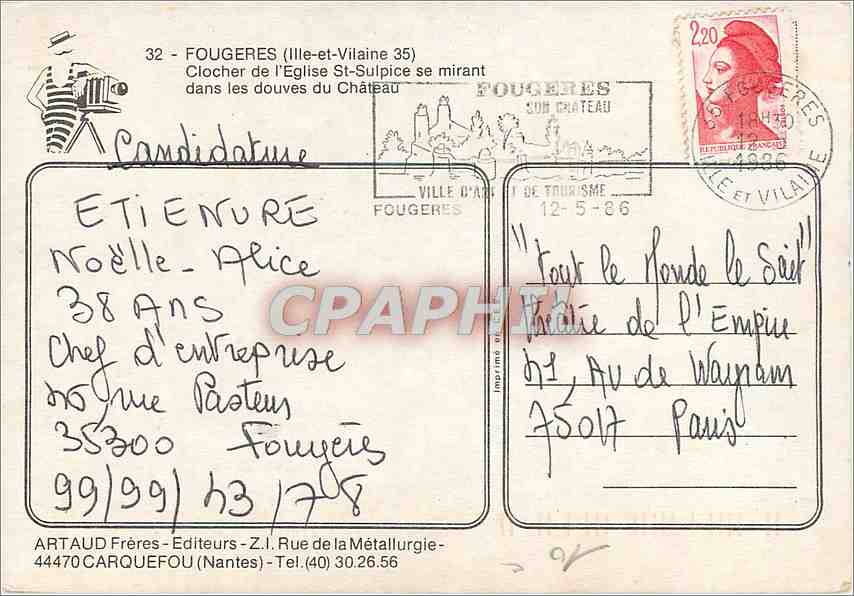 32 - FOUGERES (Ille-et-Vilaine 35)
Clocher de l'Eglise St-Sulpice se mirant
dans les douves du Château
Candidature
FOUGERES
SON CHATEAU
VILLE D'ART ET DE TOURISME
FOUGERES 12-5-86
2,20
REPUBLIQUE FRANÇAISE
35 FOUGERES
18H30
12-5
1986
ILLE ET VILAINE
ETIENURE
Noëlle-Alice
38 ANS
Chef d'entreprise
rue Pasteur
35300 Fougères
99/99/43/78
"Tout le Monde le Sait"
Théâtre de l'Empire
41, Av de Wagram
75017 Paris
CPAPHIL
Imprimé en CEE
ARTAUD Frères - Editeurs - Z.I. Rue de la Métallurgie -
44470 CARQUEFOU (Nantes) - Tel. (40) 30.26.56